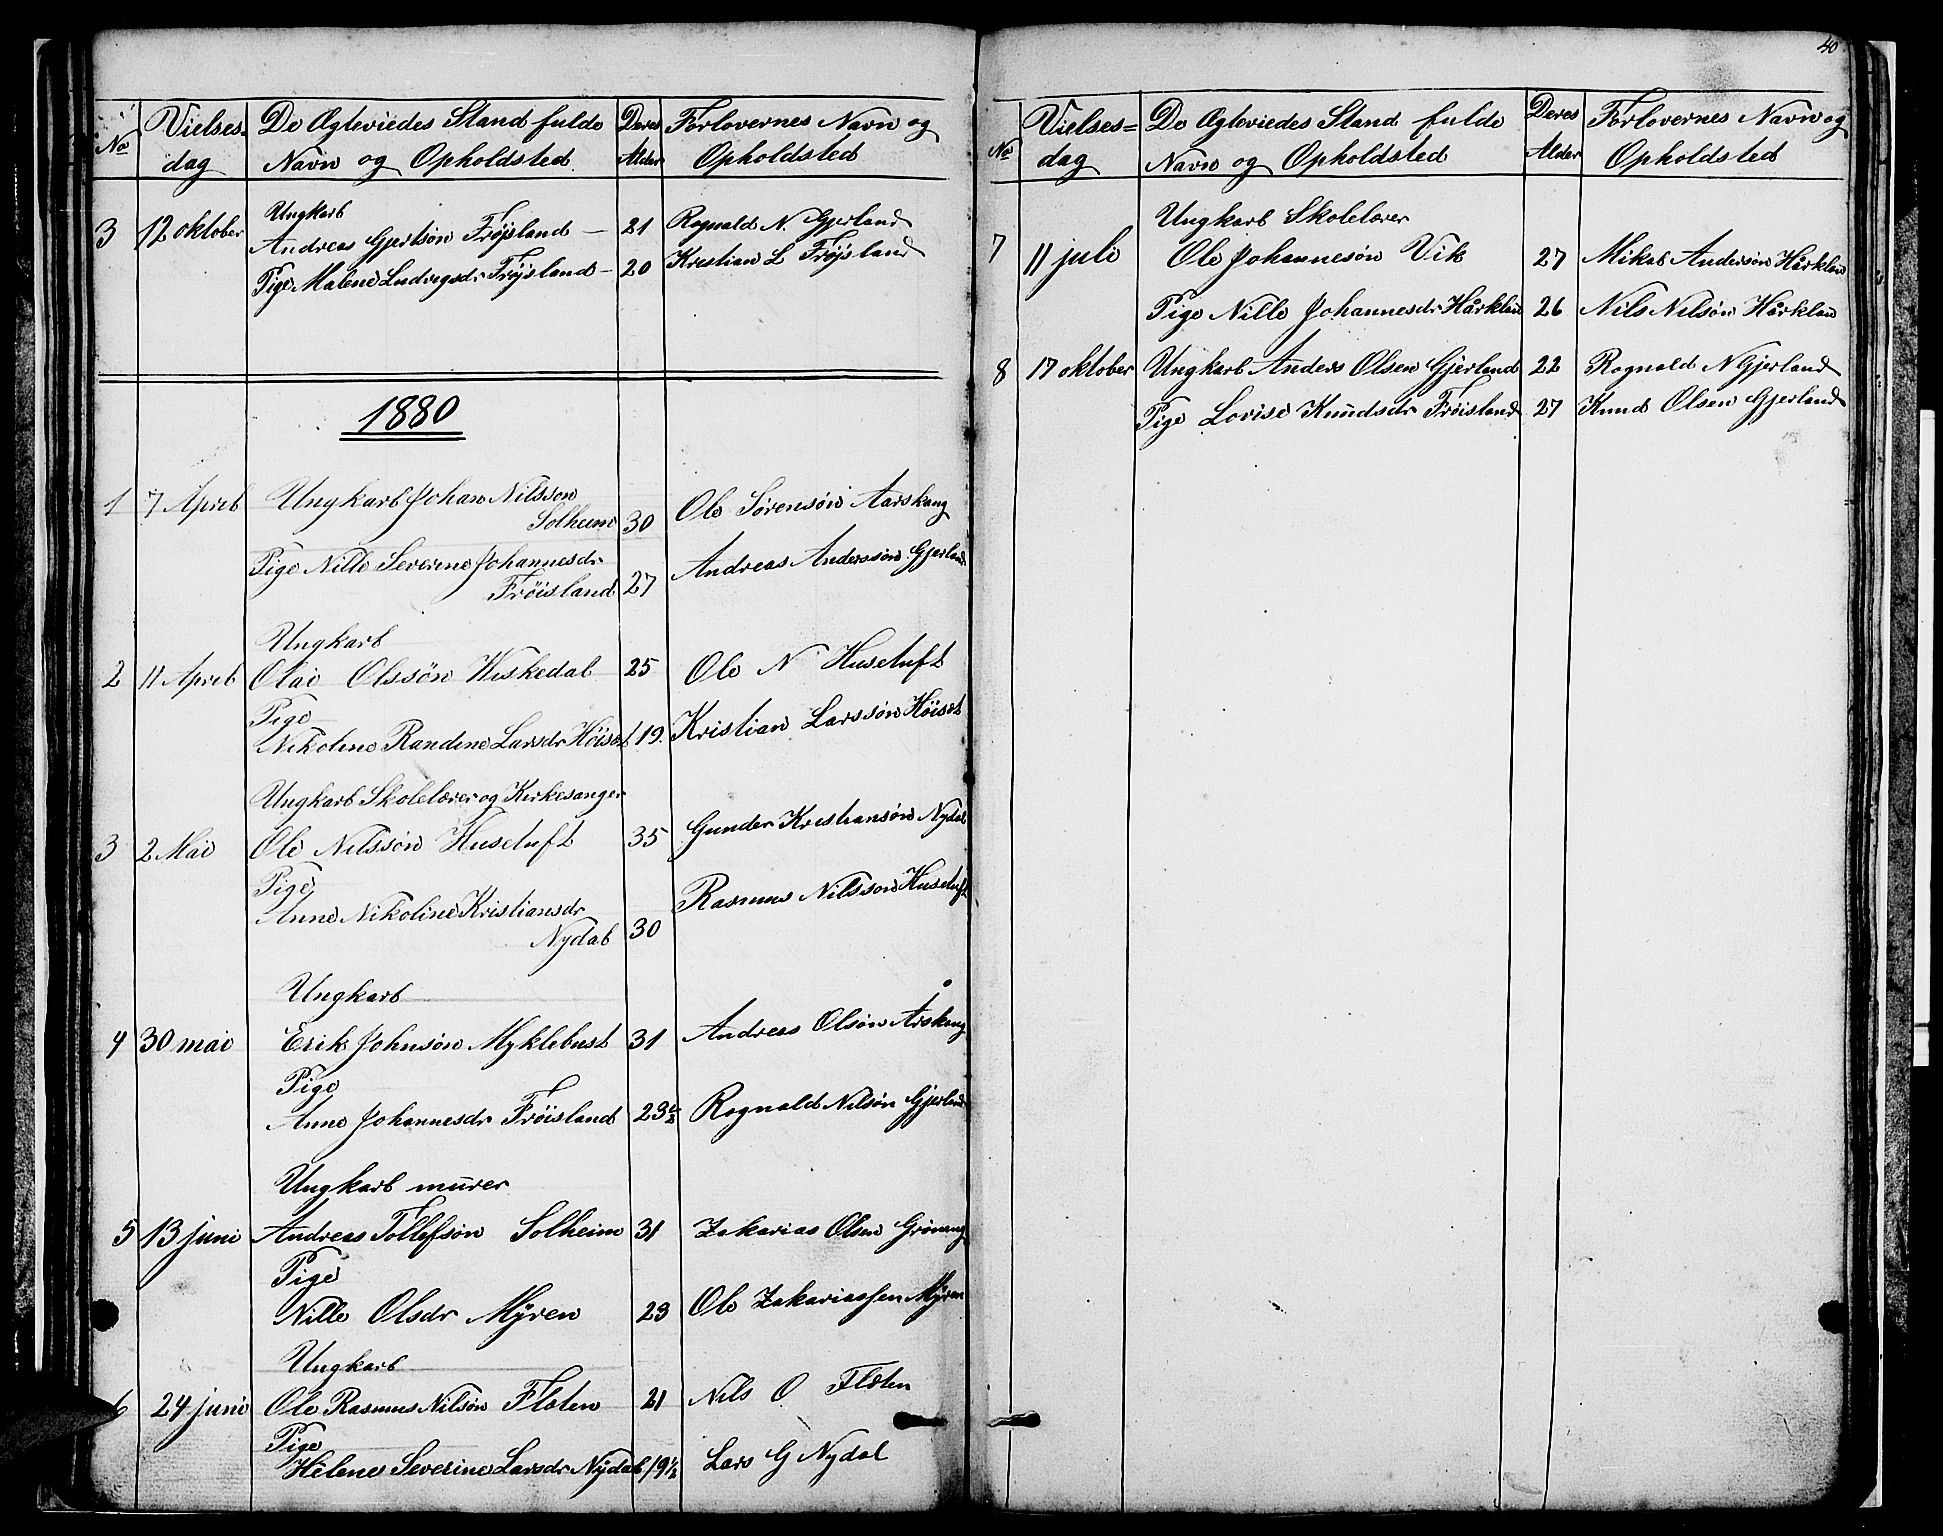 No
Vielses-
dag
De Ægteviedes Stand fulde
Navn og Opholdsted
Deres
Alder
Forlovernes Navn og
Opholdsted
3 12 oktober
Ungkarl
Andreas Gjertsön Fröjsland — 21 Rognald N. Gjerland
Pige Malene Ludvigsdr Fröjsland — 20 Kristian L Fröjsland
1880
1 7 April Ungkarl Johan Nilsson
Solheim 30 Ole Sørensøn Aarskaug
Pige Nille Severine Johannesdr
Fröisland 27 Andreas Anderssön Gjerland
Ungkarl
2 11 April Olai Olssön Viskedal 25 Ole N Husetuft
Pige
Nikoline Randine Larsdr Höiset 19. Kristian Larssön Höiset
Ungkarl Skolelærer og Kirkesanger
3 2 Mai Ole Nilssön Husetuft 35 Gunder Kristiansön Nydal
Pige
Anne Nikoline Kristiansdr
Nydal 30 Rasmus Nilsson Husetuft
Ungkarl
4 30 mai Erik Johnsön Myklebust 31 Andreas Olsön Årskaug
Pige
Anne Johannesdr Fröisland 23½ Rognald Nilsön Gjerland
Ungkarl mürer
5 13 juni Andreas Tollefsön Solheim 31 Zakarias Olsen Grönning
Pige
Nille Olsdr Mÿren 23 Ole Zakariassen Mÿren
Ungkarl
6 24 juni Ole Rasmus Nilsön Flöten 21 Nils O Flöten
Pige
Helene Severine Larsdr Nÿdal 19½ Lars G Nydal
40
No
Vielses=
dag
De Ægteviedes Stand fulde
Navn og Opholdsted
Deres
Alder
Forlovernes Navn og
Opholdsted
Ungkarl Skolelærer
7 11 juli Ole Johannesön Vik 27 Mikal Andersön Hårklau
Pige Nille Johannesdr Hårklau 26 Nils Nilsön Hårklau
8 17 oktober Ungkarl Anders Olsen Gjerland 22 Rognald N Gjerland
Pige Lovise Knüdsdr Fröisland 27 Knud Olsen Gjerland